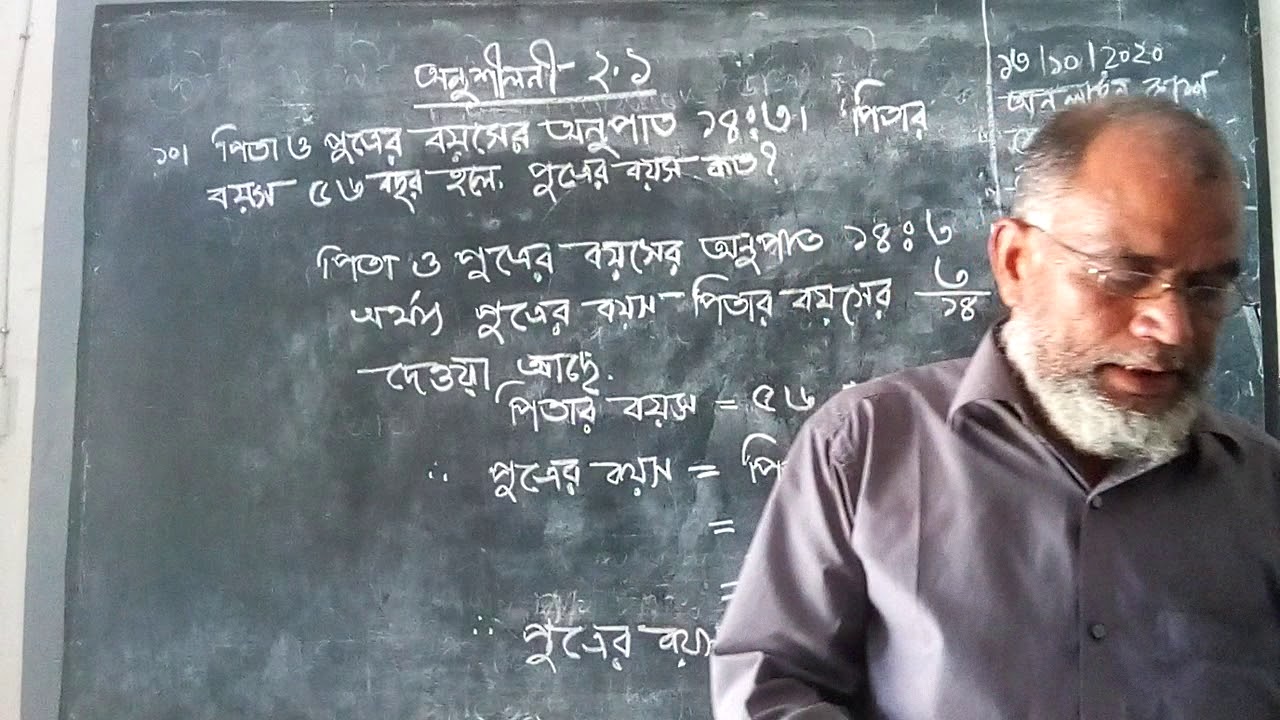 অনুশীলনী- ২.১
১০। পিতা ও পুত্রের বয়সের অনুপাত ১৪:৩। পিতার
বয়স ৫৬ বছর হলে, পুত্রের বয়স কত?
পিতা ও পুত্রের বয়সের অনুপাত ১৪:৩
অর্থাৎ পুত্রের বয়স পিতার বয়সের ৩/১৪
দেওয়া আছে,
পিতার বয়স = ৫৬
∴ পুত্রের বয়স =
=
=
∴ পুত্রের বয়স
/১০/২০২০
অনলাইন ক্লাশ